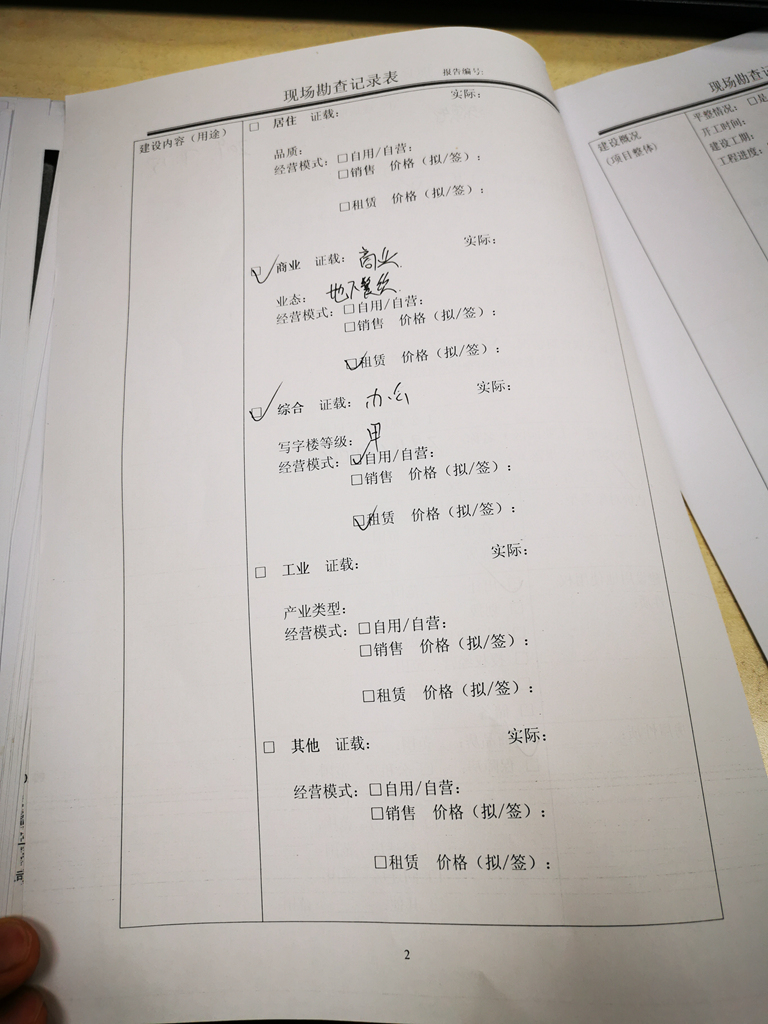 现场勘查记录表 报告编号:
建设内容（用途）
□ 居住 证载： 实际：
品质：
经营模式：□自用/自营：
□销售 价格（拟/签）：
□租赁 价格（拟/签）：
☑ 商业 证载：商业 实际：
业态：地下餐饮
经营模式：□自用/自营：
□销售 价格（拟/签）：
☑租赁 价格（拟/签）：
☑ 综合 证载：办公 实际：
写字楼等级：甲
经营模式：☑自用/自营：
□销售 价格（拟/签）：
☑租赁 价格（拟/签）：
□ 工业 证载： 实际：
产业类型：
经营模式：□自用/自营：
□销售 价格（拟/签）：
□租赁 价格（拟/签）：
□ 其他 证载： 实际：
经营模式：□自用/自营：
□销售 价格（拟/签）：
□租赁 价格（拟/签）：
2
现场勘查记
建设概况
（项目整体）
平整情况：□是
开工时间：
建设工期：
工程进度：